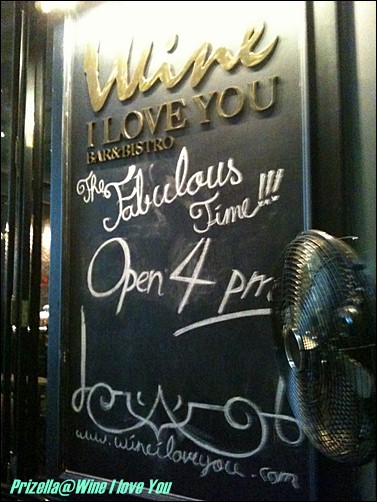 Wine
I LOVE YOU
BAR&BISTRO
The Fabulous
Time!!!
Open 4 pm
www.wineiloveyou.com
Prizella@Wine I love You